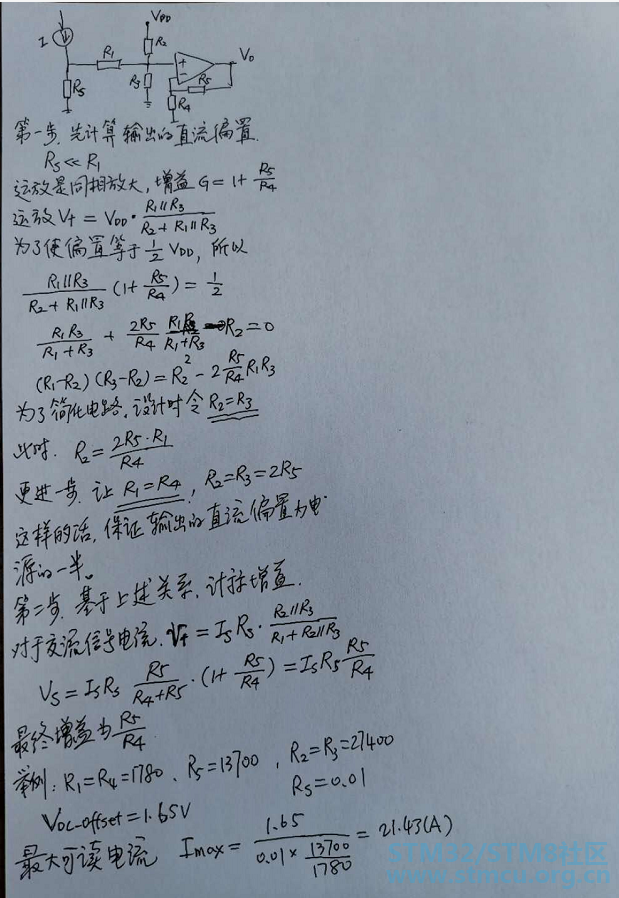 VDD
I
R1
R2
VO
R3
R5
R4
RS
第一步,先计算输出的直流偏置.
RS << R1
运放是同相放大,增益 G = 1 + R5/R4
运放 V+ = VDD · (R1//R3)/(R2 + R1//R3)
为了使偏置等于 1/2 VDD, 所以
(R1//R3)/(R2 + R1//R3) (1 + R5/R4) = 1/2
R1R3/(R1+R3) + 2R5/R4 R1R3/(R1+R3) - R2 = 0
(R1-R2)(R3-R2) = R2² - 2 R5/R4 R1R3
为了简化电路,设计时令 R2=R3
此时. R2 = 2R5·R1/R4
更进一步.让 R1=R4, R2=R3=2R5
这样的话,保证输出的直流偏置为电
源的一半。
第二步.基于上述关系,计算增益.
对于交流信号电流. V+ = IS RS · (R2//R3)/(R1 + R2//R3)
VS = IS RS R5/(R4+R5) · (1 + R5/R4) = IS RS R5/R4
最终增益为 R5/R4
举例: R1=R4=1780 、 R5=13700 , R2=R3=27400
RS=0.01
VDC-offset = 1.65V
最大可读电流 Imax = 1.65/(0.01 × 13700/1780) = 21.43(A)
STM32/STM8社区
www.stmcu.org.cn